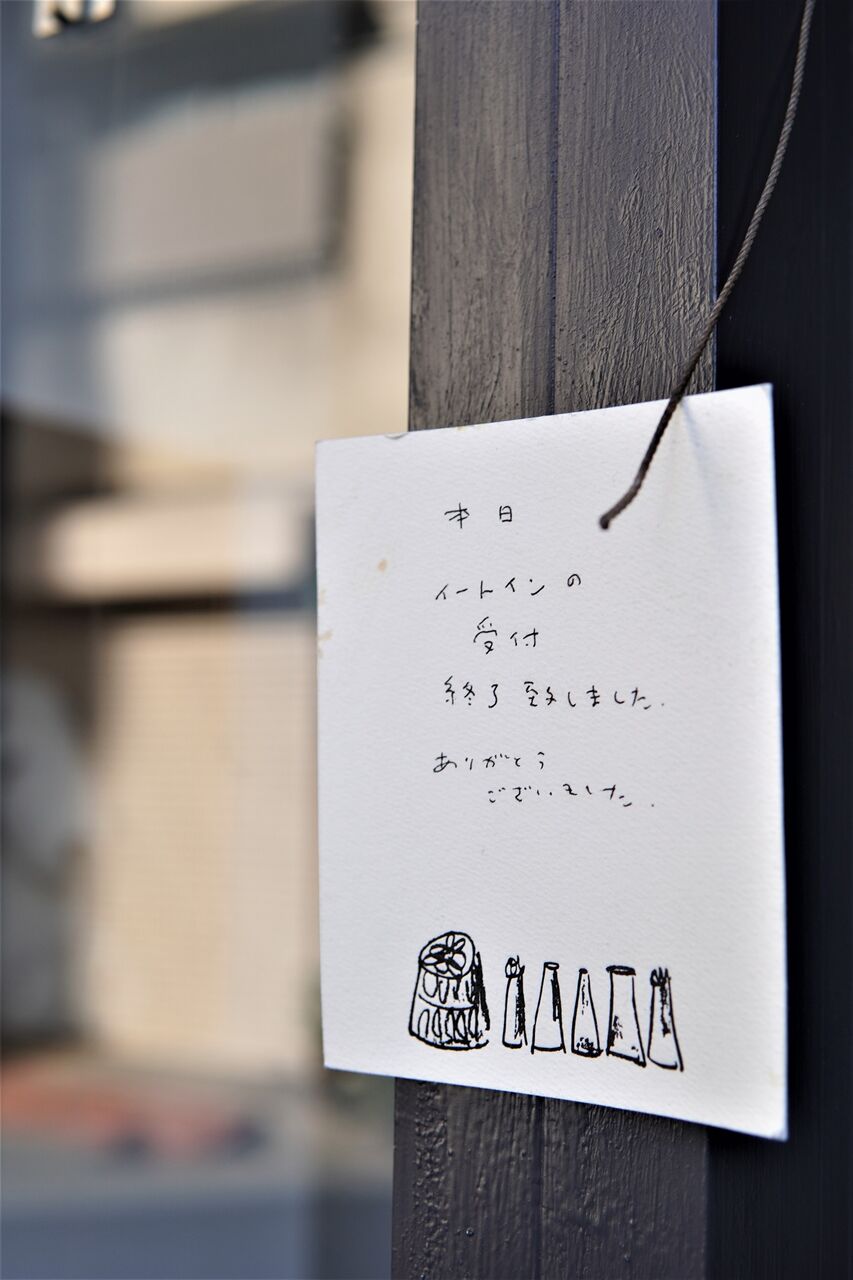 本日
イートインの
受付
終了致しました.
ありがとう
ございました.